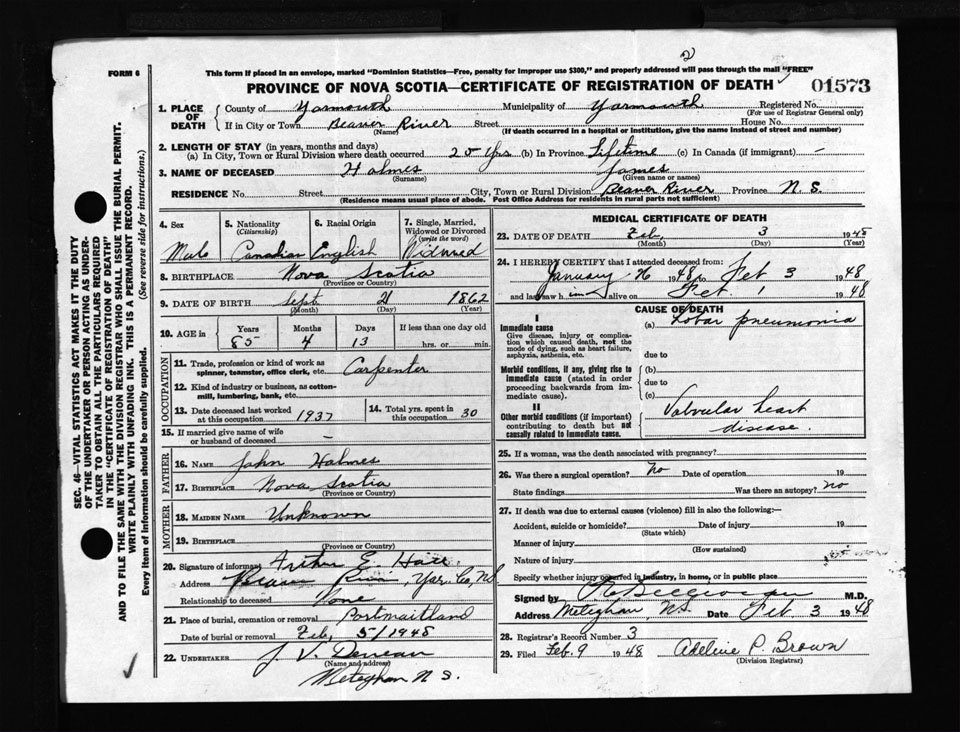 2
FORM 6
This form if placed in an envelope, marked "Dominion Statistics—Free, penalty for improper use $300," and properly addressed will pass through the mail "FREE"
PROVINCE OF NOVA SCOTIA—CERTIFICATE OF REGISTRATION OF DEATH
01573
1. PLACE OF DEATH
County of Yarmouth Municipality of Yarmouth Registered No.
(For use of Registrar General only)
If in City or Town Beaver River Street House No.
(Name) (If death occurred in a hospital or institution, give the name instead of street and number)
2. LENGTH OF STAY (in years, months and days)
(a) In City, Town or Rural Division where death occurred 20 yrs (b) In Province Lifetime (c) In Canada (if immigrant) —
3. NAME OF DECEASED Holmes James
(Surname) (Given name or names)
RESIDENCE No. Street City, Town or Rural Division Beaver River Province N. S.
(Residence means usual place of abode. Post Office Address for residents in rural parts not sufficient)
4. Sex
Male
5. Nationality
(Citizenship)
Canadian
6. Racial Origin
English
7. Single, Married, Widowed or Divorced
(write the word)
Widowed
8. BIRTHPLACE Nova Scotia
(Province or Country)
9. DATE OF BIRTH Sept 21 1862
(Month) (Day) (Year)
10. AGE in
Years Months Days If less than one day old
85 4 13 hrs. or min.
OCCUPATION
11. Trade, profession or kind of work as spinner, teamster, office clerk, etc. Carpenter
12. Kind of industry or business, as cotton-mill, lumbering, bank, etc.
13. Date deceased last worked at this occupation 1937
14. Total yrs. spent in this occupation 30
15. If married give name of wife or husband of deceased —
FATHER
16. NAME John Holmes
17. BIRTHPLACE Nova Scotia
(Province or Country)
MOTHER
18. MAIDEN NAME Unknown
19. BIRTHPLACE
(Province or Country)
20. Signature of informant Arthur E.
Address Beaver River, Yar. Co, NS
Relationship to deceased None
21. Place of burial, cremation or removal Portmaitland
Date of burial or removal Feb, 5/1948
22. UNDERTAKER J. V. Deveau
(Name and address)
Meteghan N S.
MEDICAL CERTIFICATE OF DEATH
23. DATE OF DEATH Feb, 3 1948
(Month) (Day) (Year)
24. I HEREBY CERTIFY that I attended deceased from:
January 26 1948 to Feb 3 1948
and last saw him alive on Feb. 1 1948
CAUSE OF DEATH
I
Immediate cause
Give disease, injury or complication which caused death, not the mode of dying, such as heart failure, asphyxia, asthenia, etc.
(a) Lobar pneumonia
due to
Morbid conditions, if any, giving rise to immediate cause (stated in order proceeding backwards from immediate cause).
(b)
due to
(c)
II
Other morbid conditions (if important) contributing to death but not causally related to immediate cause.
Valvular heart
disease.
25. If a woman, was the death associated with pregnancy?
26. Was there a surgical operation? No Date of operation 19
State findings Was there an autopsy? no
27. If death was due to external causes (violence) fill in also the following:—
Accident, suicide or homicide? Date of injury 19
(State which)
Manner of injury
(How sustained)
Nature of injury
Specify whether injury occurred in industry, in home, or in public place
Signed by M.D.
Address Meteghan N.S. Date Feb 3 1948
28. Registrar's Record Number 3
29. Filed Feb. 9 1948 Adeline P. Brown
(Division Registrar)
SEC. 46—VITAL STATISTICS ACT MAKES IT THE DUTY
OF THE UNDERTAKER OR PERSON ACTING AS UNDER-
TAKER TO OBTAIN ALL THE PARTICULARS REQUIRED
IN THE "CERTIFICATE OF REGISTRATION OF DEATH"
AND TO FILE THE SAME WITH THE DIVISION REGISTRAR WHO SHALL ISSUE THE BURIAL PERMIT.
WRITE PLAINLY WITH UNFADING INK. THIS IS A PERMANENT RECORD.
Every item of information should be carefully supplied. (See reverse side for instructions.)